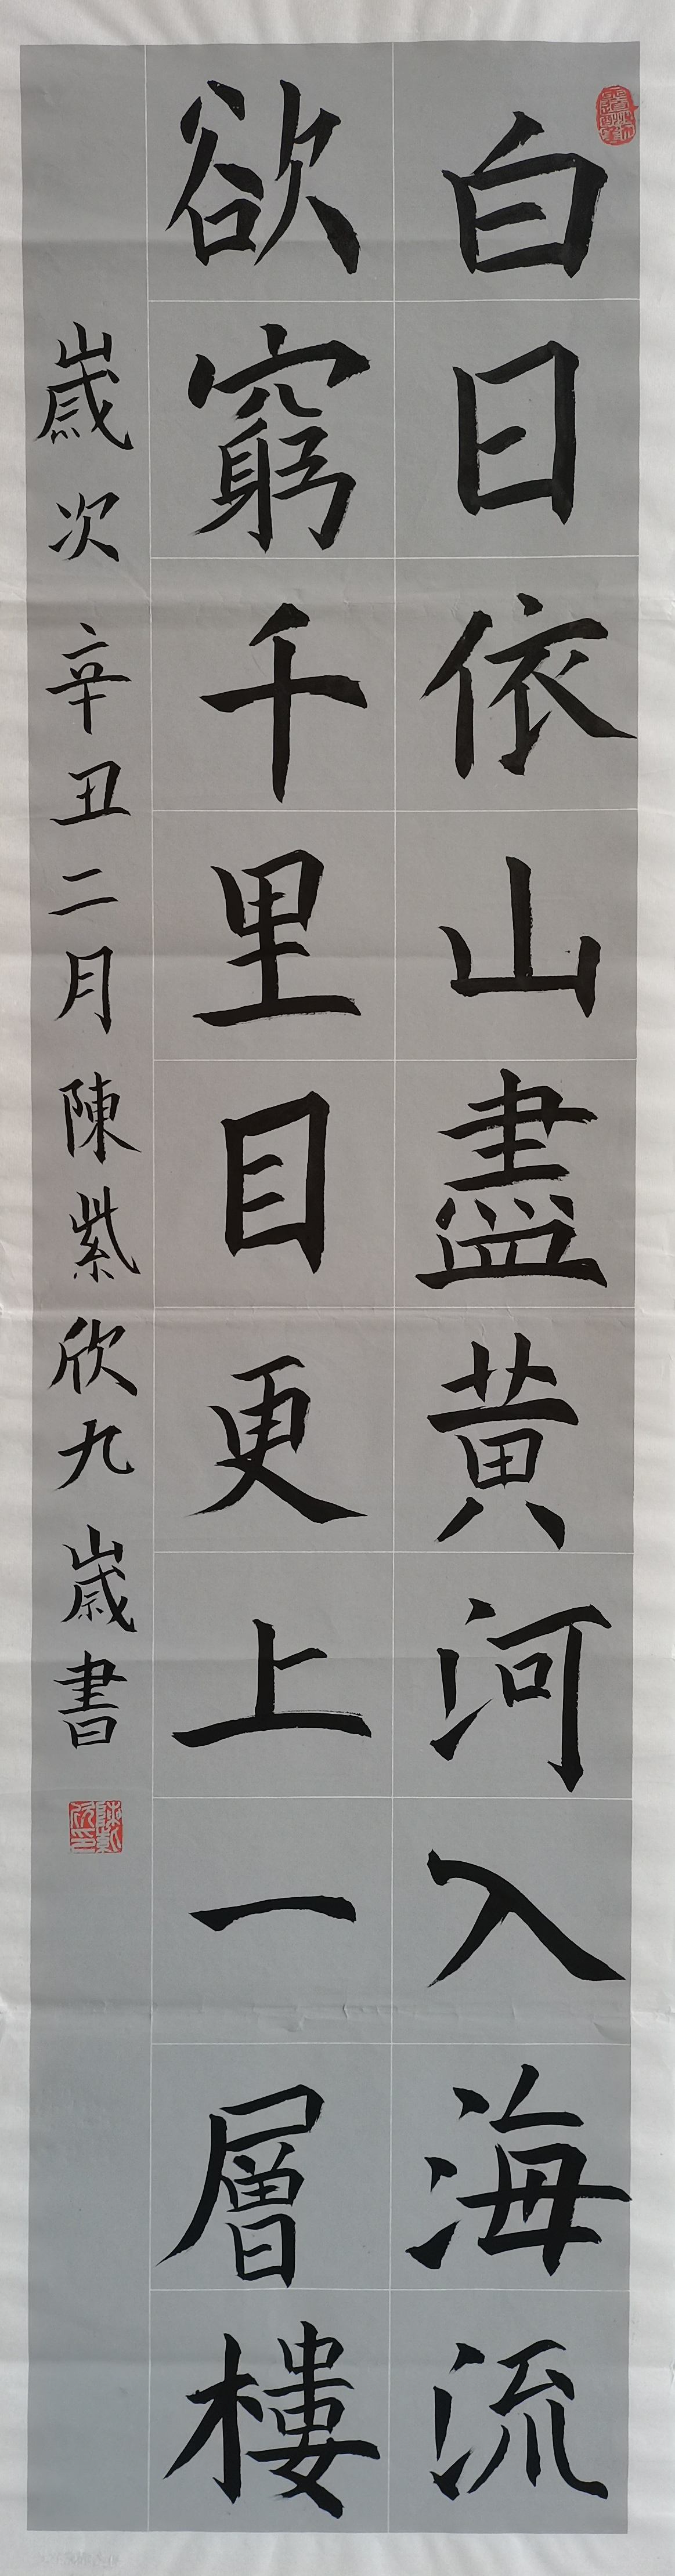 白日依山盡黃河入海流
欲窮千里目更上一層樓
歲次辛丑二月陳紫欣九歲書